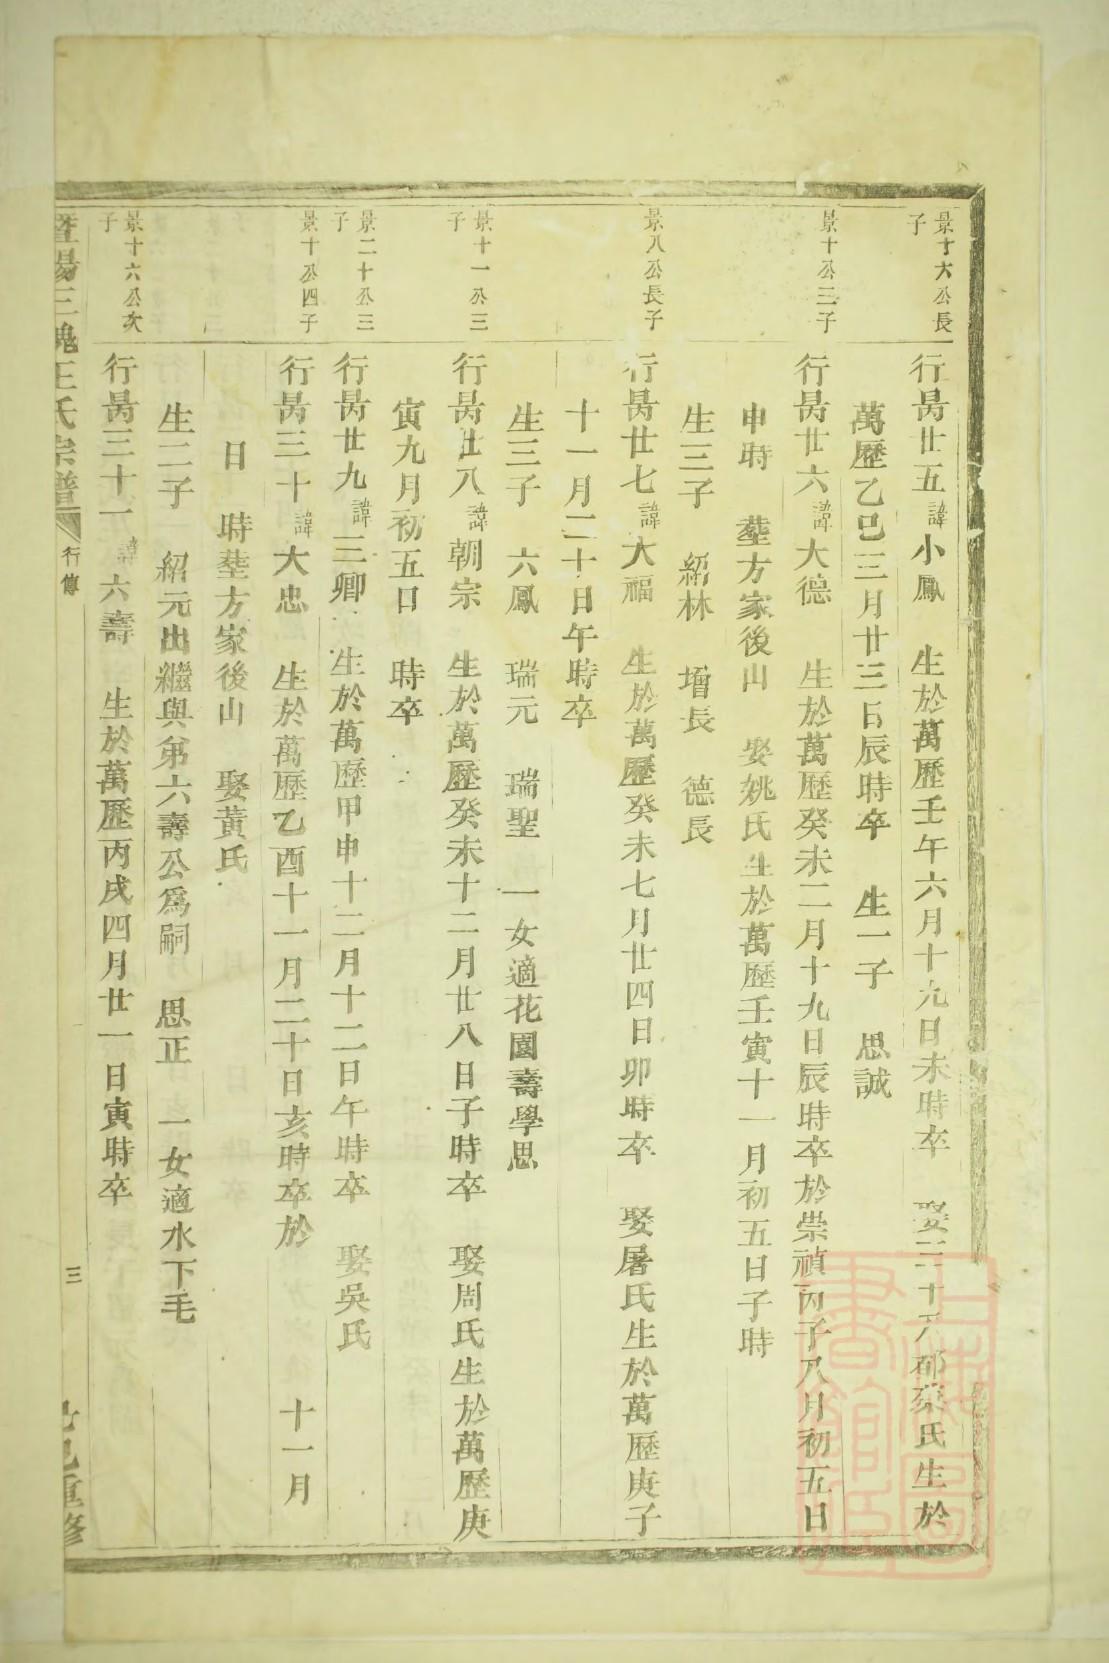 景十六公長
子
行昺廿五諱小鳳　生於萬歷壬午六月十九日未時卒　娶三十六都蔡氏生於
萬歷乙巳三月廿三日辰時卒　生一子　思誠
景十公三子
行昺廿六諱大德　生於萬歷癸未二月十九日辰時卒於崇禎丙子八月初五日
申時　塟方家後山　娶姚氏生於萬歷壬寅十一月初五日子時
生三子　紹林　增長　德長
景八公長子
行昺廿七諱大福　生於萬歷癸未七月廿四日卯時卒　娶屠氏生於萬歷庚子
十一月二十日午時卒
生三子　六鳳　瑞元　瑞聖　一女適花園壽學思
景十一公三
子
行昺廿八諱朝宗　生於萬歷癸未十二月廿八日子時卒　娶周氏生於萬歷庚
寅九月初五日　時卒
景二十公三
子
行昺廿九諱三卿　生於萬歷甲申十二月十二日午時卒　娶吳氏
景十公四子
行昺三十諱大忠　生於萬歷乙酉十一月二十日亥時卒於　十一月
日　時塟方家後山　娶黃氏
生二子　紹元出繼與弟六壽公爲嗣　思正　一女適水下毛
景十六公次
子
行昺三十一諱六壽　生於萬歷丙戌四月廿一日寅時卒
暨陽三槐王氏宗譜　行傳　三　己巳重修
上海圖書館藏